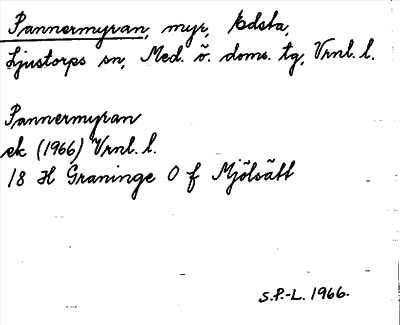 Pannermyran, myr, Edsta,
Ljustorps sn, Med. ö. doms. tg, Vrnl. l.
Pannermyran
ek (1966) Vrnl. l.
18 H Graninge O f Mjölsätt
S.P.-L. 1966.